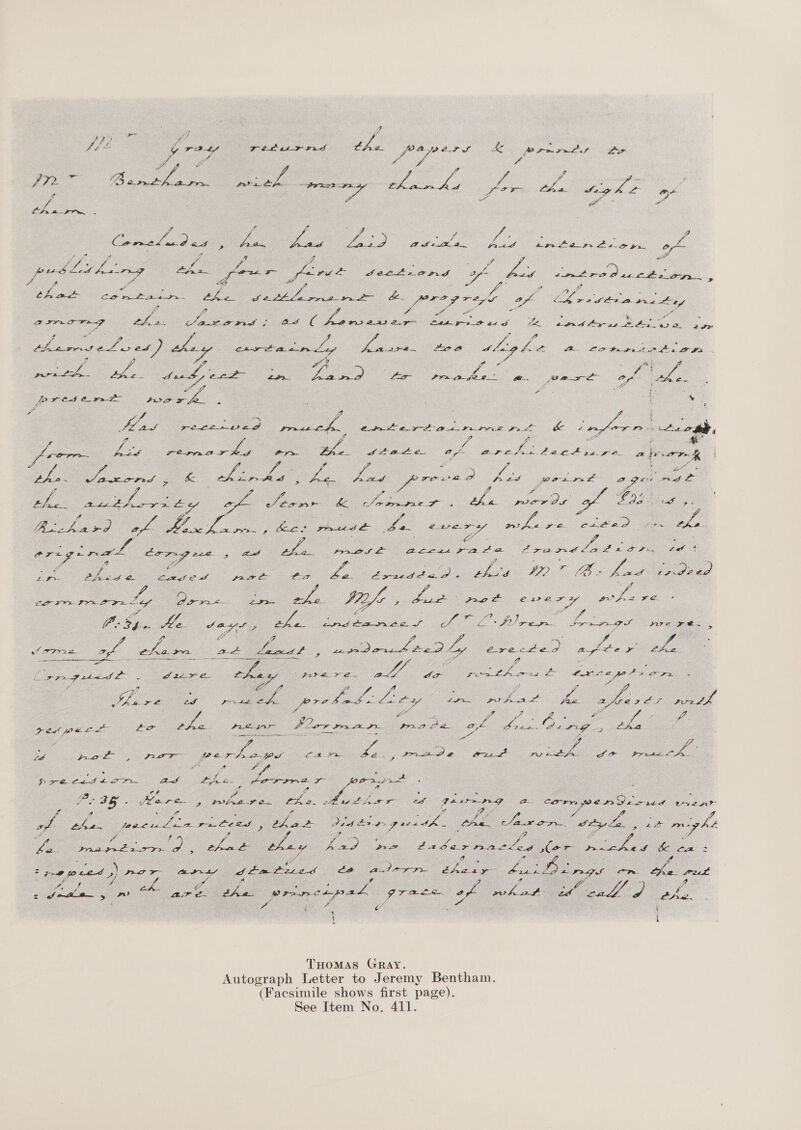 Mr Gray returns the papers & prints to
Mr Bentham with many thanks for the sight of
them.
Concludes, he has laid aside his intention of
publishing the four first sections of his introduction,
that contain the settlement & progress of Christianity
among the Saxons: as (however curious & instructive in
themselves) they certainly have too slight a connection
with the subject in hand to make a part of the
present work.
Has received much entertainment & information
from his remarks on the state of architecture among
the Saxons, & thinks, he has proved his point against
the authority of Stow & Somner. the words of Eddius,
Richard of Hexham, &c: must be every where cited in the
original tongue, as the most accurate translation is
in these cases not to be trusted. this Mr B: has indeed
commonly done in the Mss, but not every where.
P:31. He says, the instances Sr C: Wren brings were,
some of them at least, undoubtedly erected after the
Conquest. sure they were all so without exception.
There is much probability in what he asserts with
respect to the new Norman mode of building, tho'
is not, nor perhaps can be, made out with so much
precision as the former point.
P:35. Here, where the Author is giving a compendious view
of the peculiarities, that distinguish the Saxon style, it might
be mention'd, that they had no tabernacles (or niches & ca:
:nopies,) nor any statues to adorn their buildings on the out
:side, wch are the principal grace of what is call'd the
THOMAS GRAY.
Autograph Letter to Jeremy Bentham.
(Facsimile shows first page).
See Item No. 411.